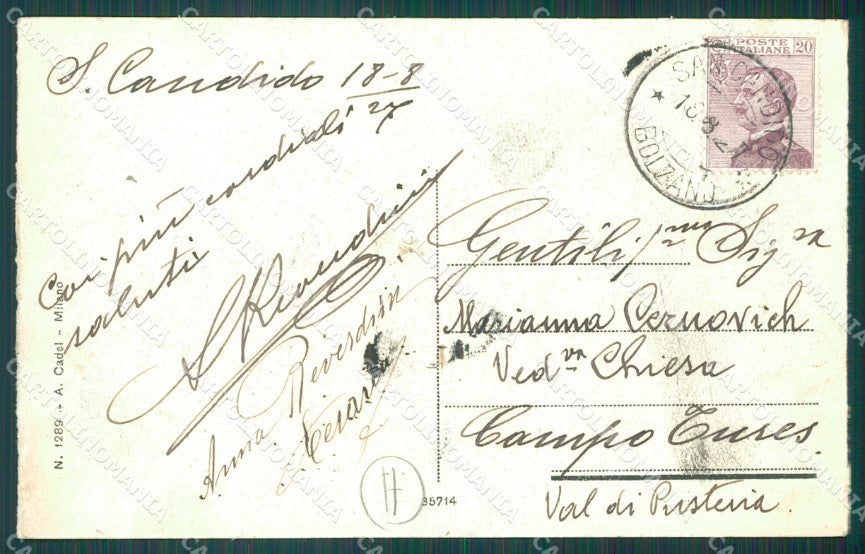 S. Candido 18-8
27
Coi più cordiali
saluti
Anna Reverdin
Cesarina
N. 1289 - A. Cadel - Milano
35714
H
POSTE
ITALIANE 20
SAN CANDIDO
18.8.27
BOLZANO
Gentili/ma Sigra
Marianna Cernovich
Vedva Chiesa
Campo Tures.
Val di Pusteria.
CARTOLINOMANIA